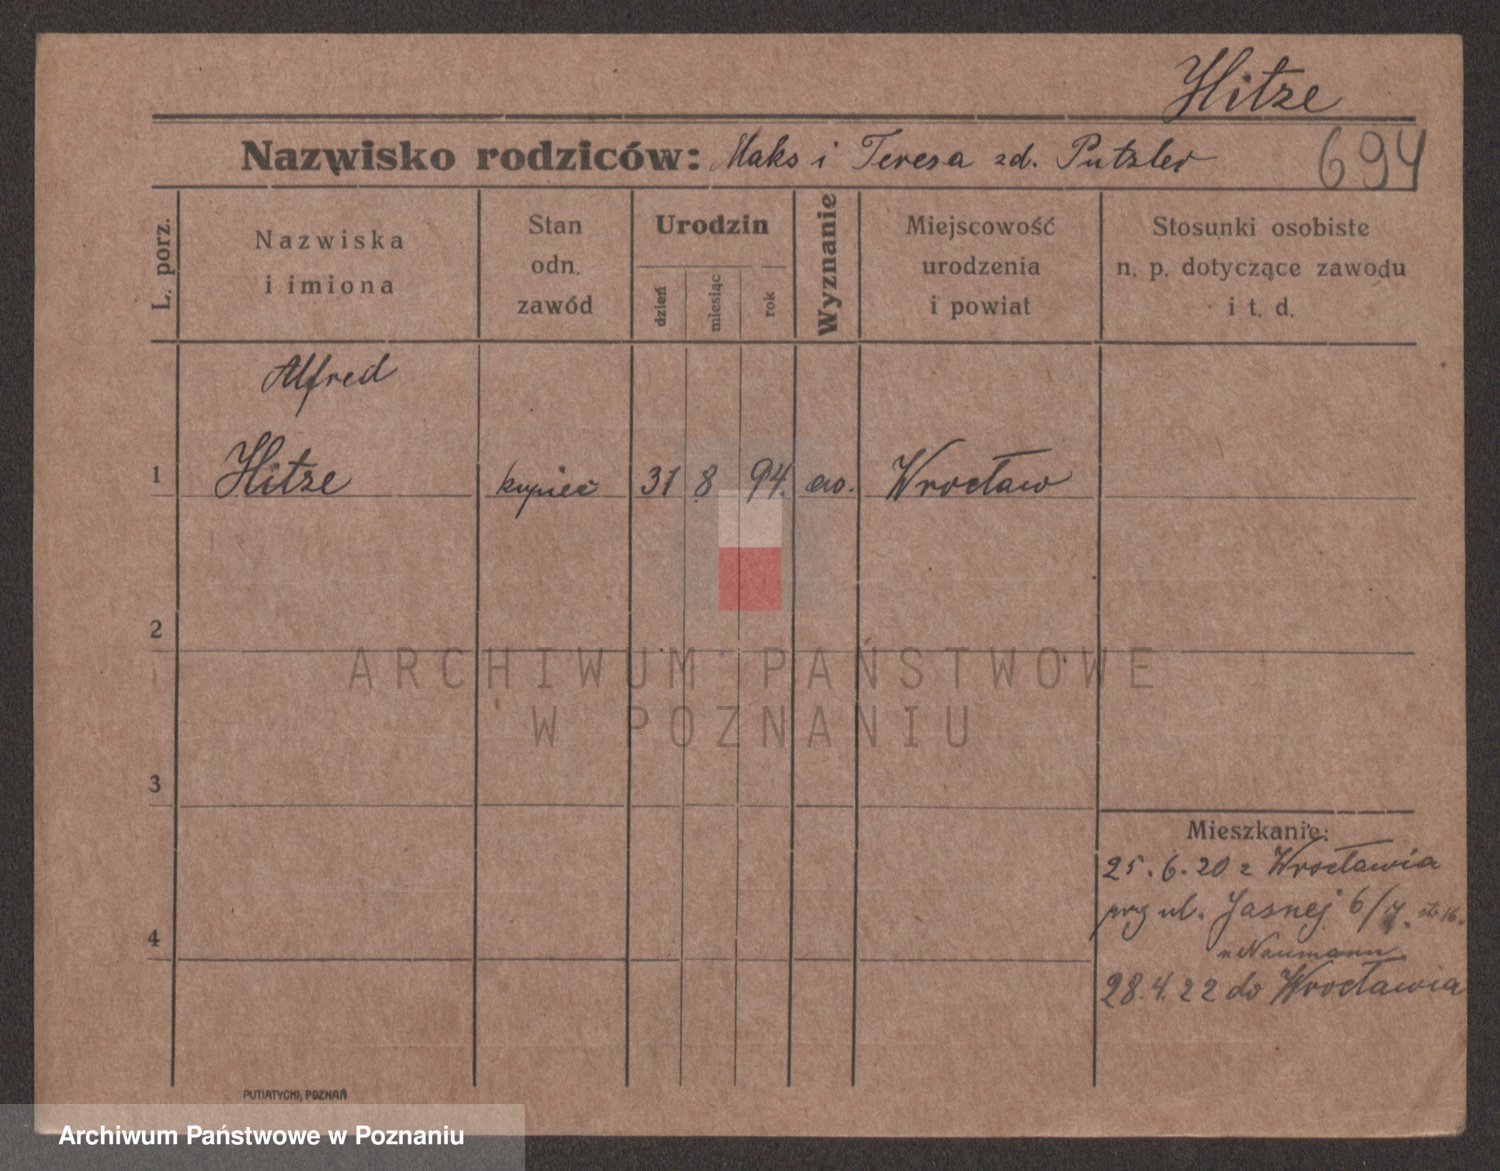 Hitze
Nazwisko rodziców: Maks i Teresa zd. Putzler
694
L. porz.
Nazwiska
i imiona
Stan
odn.
zawód
Urodzin
dzień
miesiąc
rok
Wyznanie
Miejscowość
urodzenia
i powiat
Stosunki osobiste
n. p. dotyczące zawodu
i t. d.
Alfred
1 Hitze kupiec 31 8 94. ew. Wrocław
2
ARCHIWUM PAŃSTWOWE
W POZNANIU
3
Mieszkanie:
25.6.20 z Wrocławia
przy ul. Jasnej 6/7. 16.
u Naumann
4
28.4.22 do Wrocławia
PUTIATYCKI, POZNAŃ
Archiwum Państwowe w Poznaniu